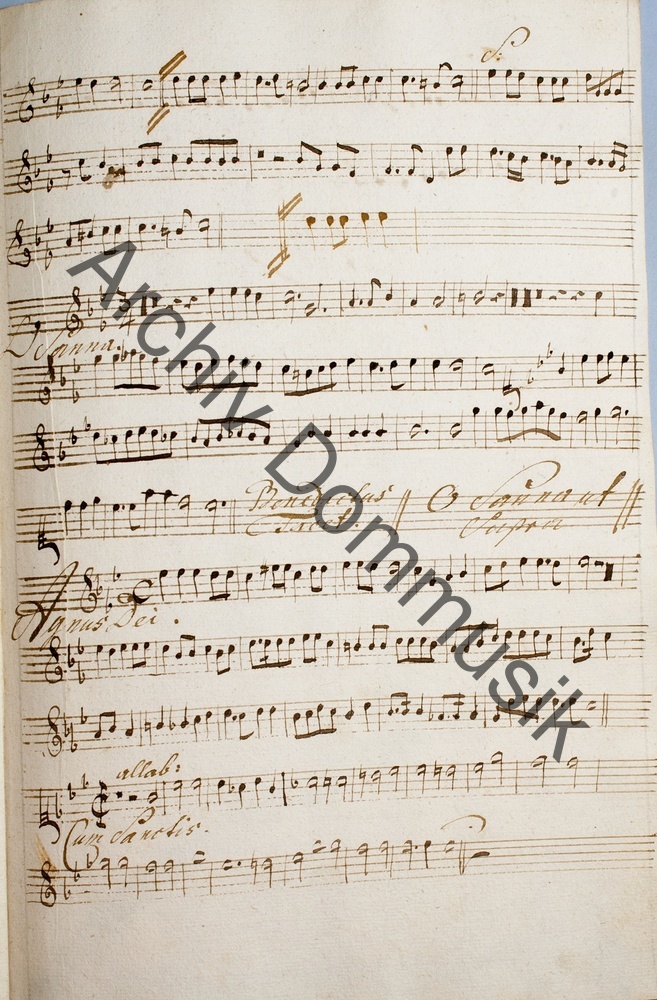 S:
Osanna.
Benedictus
O Sanna ut
Supra
Agnus Dei.
allab:
Cum Sanctis.
Archiv Dommusik